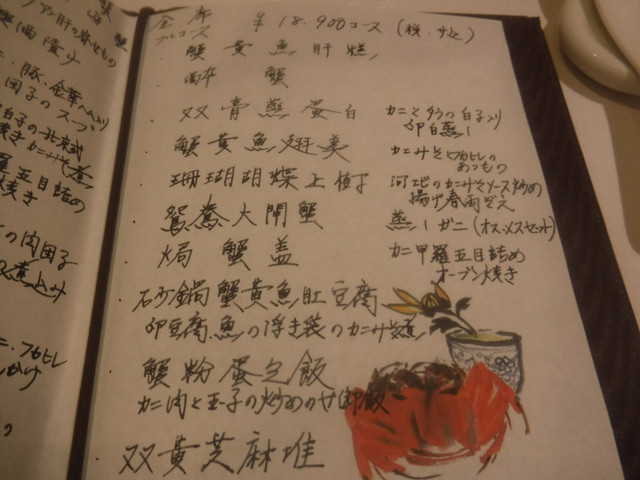 全席
フルコース
¥18.900コース(税・サ込)
蟹黄魚肝糕
酔蟹
双膏蒸蛋白
カニとタラの白子入り
卵白蒸し
蟹黄魚翅羹
カニみそとフカヒレの
あつもの
珊瑚胡蝶上樹
河エビのカニみそソース炒め
揚げ春雨ぞえ
鴛鴦大閘蟹
蒸しガニ(オス、メスセット)
焗蟹盖
カニ甲羅五目詰め
オーブン焼き
砂鍋蟹黄魚肚豆腐
卵豆腐魚の浮き袋のカニみそ煮
蟹粉蛋包飯
カニ肉と玉子の炒めのせ御飯
双黄芝麻堆
豚・金華入り
団子のスープ
五目詰め
焼き
の肉団子
煮上み
・フカヒレ
の